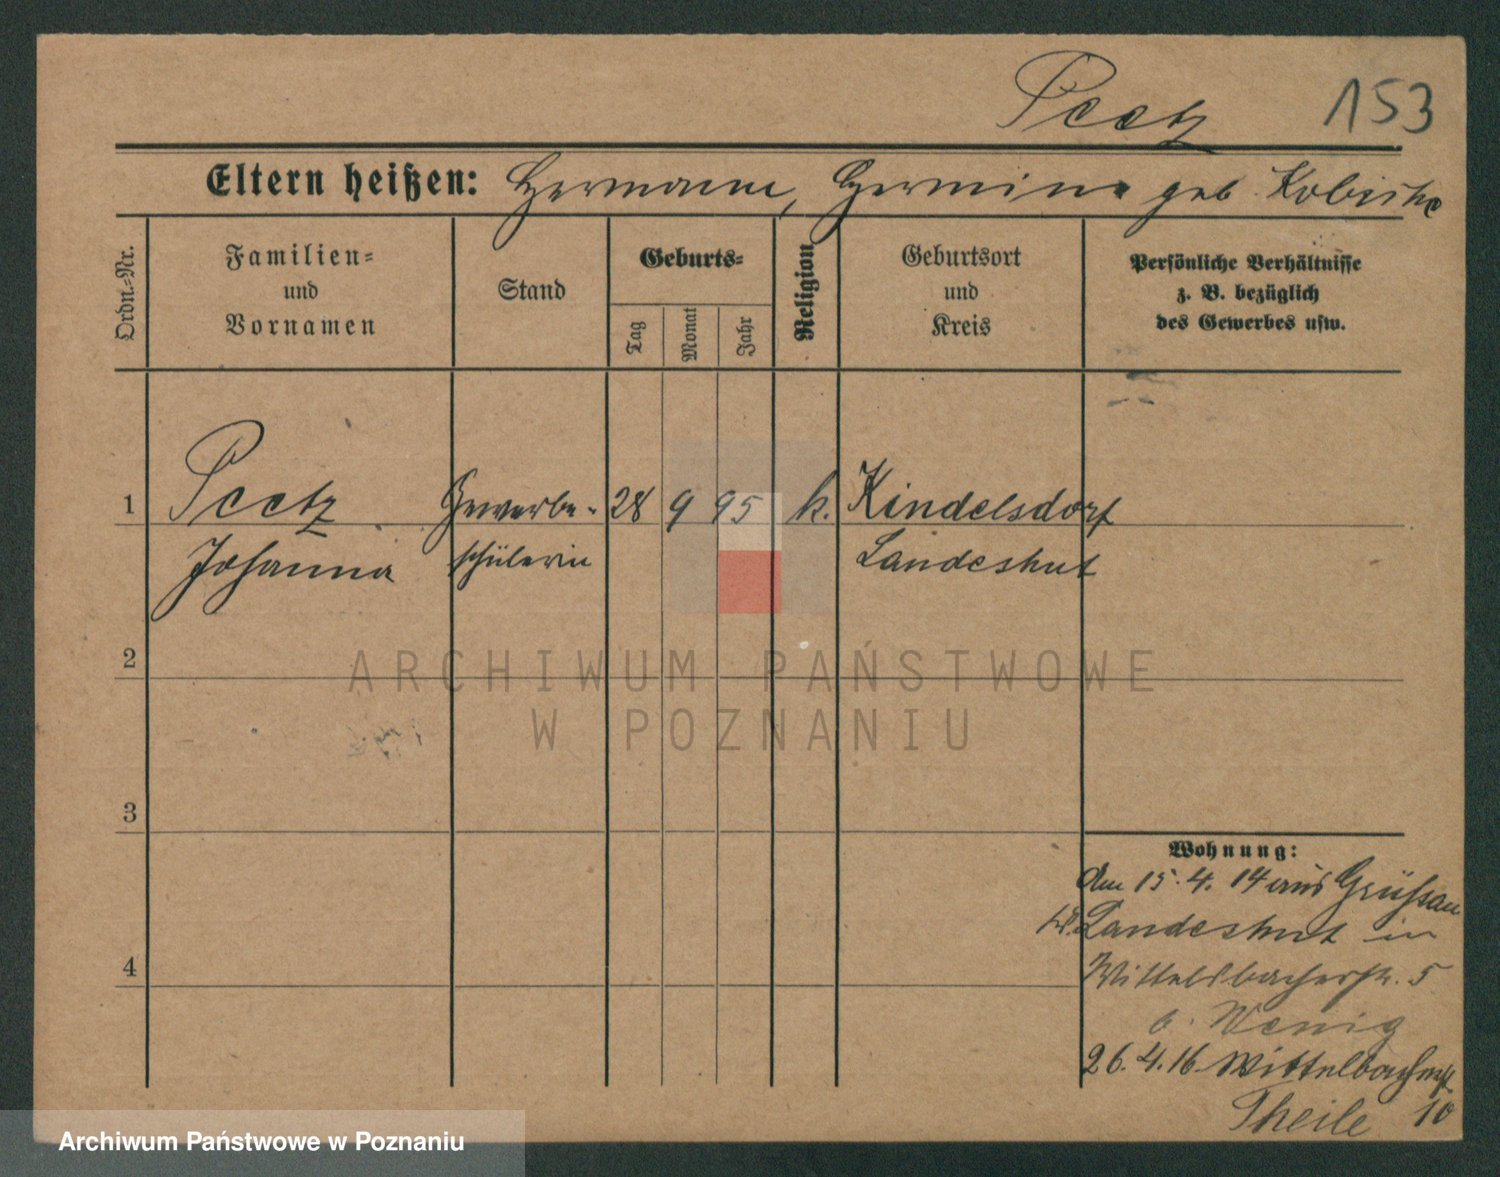 Peetz 153
Eltern heißen: Hermann, Hermine geb. Kobischke
Ordn.-Nr.
Familien-
und
Vornamen
Stand
Geburts-
Tag
Monat
Jahr
Religion
Geburtsort
und
Kreis
Persönliche Verhältnisse
z. B. bezüglich
des Gewerbes usw.
1 Peetz Gewerbe- 28 9 95 k. Kindelsdorf
Johanna schülerin Landeshut
2
ARCHIWUM PAŃSTWOWE
W POZNANIU
3
Wohnung:
Am 15.4.14 aus Grüssau
Kr. Landeshut in
4
Wittelsbacherstr. 5
b. Wenig
26.4.16 Wittelbacherstr
Theile 10
Archiwum Państwowe w Poznaniu